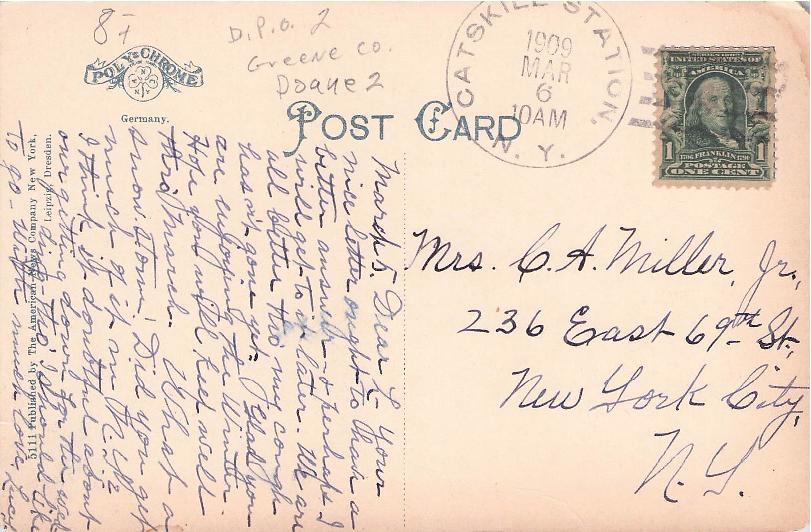 87
D.P.O. 2
Greene Co.
Doane 2
POLY-CHROME
Germany.
POST CARD
CATSKILL STATION,
N. Y.
1909
MAR
6
10AM
SERIES 1902
UNITED STATES OF
AMERICA
1706 FRANKLIN 1790
1 1
POSTAGE
ONE CENT
March 5. Dear L- Your
nice letter ought to have a
better answer - & perhaps I
will get to it later. We are
all better tho' my cough
has n't gone yet. Glad you
are enjoying the Winter.
Hope you will keep well
this March. What a
snow storm! Did you get
much of it in N.Y.?
I think it doubtful about
our getting down for the
tho' I should like
to go - With much love,
Mrs. C. A. Miller, Jr.,
236 East 69th St.,
New York City,
N. Y.
5111 Published by The American News Company New York,
Leipzig, Dresden.